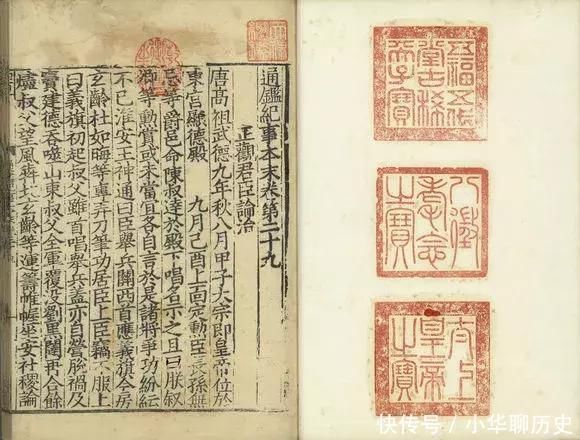 通鑑紀事本末卷第二十九
正觀君臣論治
唐高祖武德九年秋八月甲子太宗即皇帝位於
東宮顯德殿　九月己酉上面定勳臣長孫無
忌等爵邑命陳叔達於殿下唱名示之且曰朕叙
卿等勳賞或未當宜各自言於是諸將爭功紛紜
不已淮安王神通曰臣舉兵關西首應義旗今房
玄齡杜如晦等專弄刀筆功居臣上臣竊不服上
曰義旗初起叔父雖首唱舉兵蓋亦自營脫禍及
竇建德吞噬山東叔父全軍覆没劉黑闥再合餘
燼叔父望風奔北玄齡等運籌帷幄坐安社稷論
五福五代
堂古稀
天子寶
八徵
耄念
之寶
太上
皇帝
之寶
快传号/小华聊历史